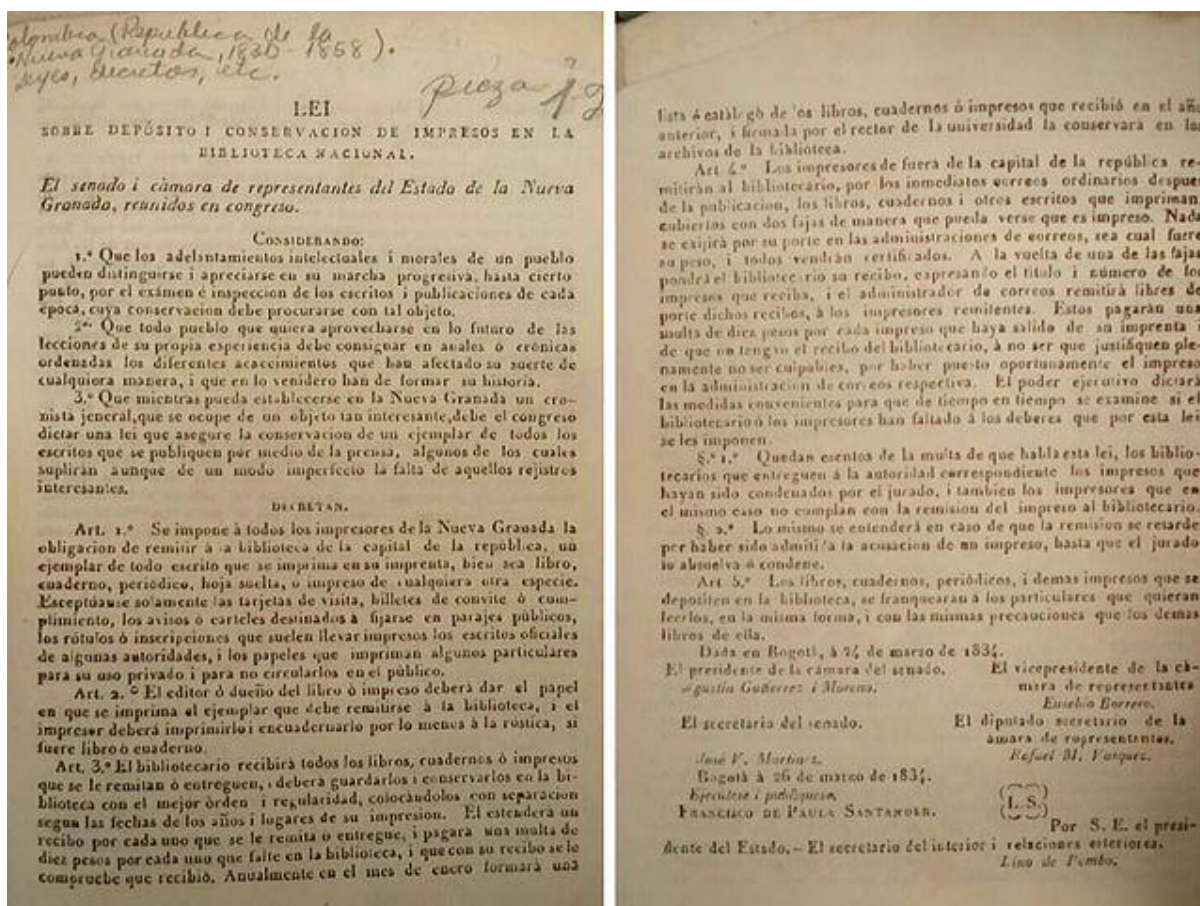 Colombia (Republica de la
Nueva Granada, 1830-1858).
Leyes, decretos, etc.
pieza
LEI
SOBRE DEPÓSITO I CONSERVACION DE IMPRESOS EN LA
BIBLIOTECA NACIONAL.
El senado i càmara de representantes del Estado de la Nueva
Granada, reunidos en congreso.
CONSIDERANDO:
1.º Que los adelantamientos intelectuales i morales de un pueblo
pueden distinguirse i apreciarse en su marcha progresiva, hasta cierto
punto, por el exámen é inspeccion de los escritos i publicaciones de cada
época, cuya conservacion debe procurarse con tal objeto.
2º Que todo pueblo que quiera aprovecharse en lo futuro de las
lecciones de su propia esperiencia debe consignar en anales ò crónicas
ordenadas los diferentes acaecimientos que han afectado su suerte de
cualquiera manera, i que en lo venidero han de formar su historia.
3.º Que mientras pueda establecerse en la Nueva Granada un cro-
nista jeneral, que se ocupe de un objeto tan interesante, debe el congreso
dictar una lei que asegure la conservacion de un ejemplar de todos los
escritos que se publiquen por medio de la prensa, algunos de los cuales
suplirán aunque de un modo imperfecto la falta de aquellos rejistros
interesantes.
DECRETAN.
Art. 1.º Se impone à todos los impresores de la Nueva Granada la
obligacion de remitir à la biblioteca de la capital de la república, un
ejemplar de todo escrito que se imprima en su imprenta, bien sea libro,
cuaderno, periódico, hoja suelta, o impreso de cualquiera otra especie.
Esceptúanse solamente las tarjetas de visita, billetes de convite ò cum-
plimiento, los avisos ò carteles destinados à fijarse en parajes públicos,
los rótulos ò inscripciones que suelen llevar impresos los escritos oficiales
de algunas autoridades, i los papeles que impriman algunos particulares
para su uso privado i para no circularlos en el público.
Art. 2.º El editor ò dueño del libro ò impreso deberá dar el papel
en que se imprima el ejemplar que debe remitirse à la biblioteca, i el
impresor deberá imprimirlo i encuadernarlo por lo menos à la rústica, si
fuere libro ò cuaderno.
Art. 3.º El bibliotecario recibirà todos los libros, cuadernos ò impresos
que se le remitan ò entreguen, i deberá guardarlos i conservarlos en la bi-
blioteca con el mejor òrden i regularidad, colocàndolos con separacion
segun las fechas de los años i lugares de su impresion. El estenderà un
recibo por cada uno que se le remita o entregue, i pagarà una multa de
diez pesos por cada uno que falte en la biblioteca, i que con su recibo se le
compruebe que recibiò. Anualmente en el mes de enero formarà una
lista ó catálogo de los libros, cuadernos ò impresos que recibiò en el año
anterior, i firmada por el rector de la universidad la conservarà en los
archivos de la biblioteca.
Art 4.º Los impresores de fuera de la capital de la república re-
mitirán al bibliotecario, por los inmediatos correos ordinarios despues
de la publicacion, los libros, cuadernos i otros escritos que impriman,
cubiertos con dos fajas de manera que pueda verse que es impreso. Nada
se exijirà por su porte en las administraciones de correos, sea cual fuere
su peso, i todos vendràn certificados. A la vuelta de una de las fajas
pondrá el bibliotecario su recibo, expresando el título i número de los
impresos que reciba, i el administrador de correos remitirá libres de
porte dichos recibos, à los impresores remitentes. Estos pagarán una
multa de diez pesos por cada impreso que haya salido de su imprenta i
de que no tengan el recibo del bibliotecario, à no ser que justifiquen ple-
namente no ser culpables, por haber puesto oportunamente el impreso
en la administracion de correos respectiva. El poder ejecutivo dictará
las medidas convenientes para que de tiempo en tiempo se examine si el
bibliotecario ò los impresores han faltado á los deberes que por esta lei
se les imponen.
§.º 1.º Quedan esentos de la multa de que habla esta lei, los biblio-
tecarios que entreguen à la autoridad correspondiente los impresos que
hayan sido condenados por el jurado, i tambien los impresores que en
el mismo caso no cumplan con la remision del impreso al bibliotecario.
§. 2.º Lo mismo se entenderà en caso de que la remision se retarde
por haber sido admitida la acusacion de un impreso, hasta que el jurado
lo absuelva ó condene.
Art 5.º Los libros, cuadernos, periódicos, i demas impresos que se
depositen en la biblioteca, se franquearan à los particulares que quieran
leerlos, en la misma forma, i con las mismas precauciones que los demas
libros de ella.
Dada en Bogotá, à 24 de marzo de 1834.
El presidente de la càmara del senado.
Agustin Gutierrez i Moreno.
El vicepresidente de la cà-
mara de representantes
Eusebio Borrero.
El secretario del senado.
José V. Martinez.
El diputado secretario de la
càmara de representantes.
Rafael M. Vasquez.
Bogotà à 26 de marzo de 1834.
Ejecútese i publíquese,
FRANCISCO DE PAULA SANTANDER.
L. S.
Por S. E. el presi-
dente del Estado. — El secretario del interior i relaciones esteriores.
Lino de Pombo.